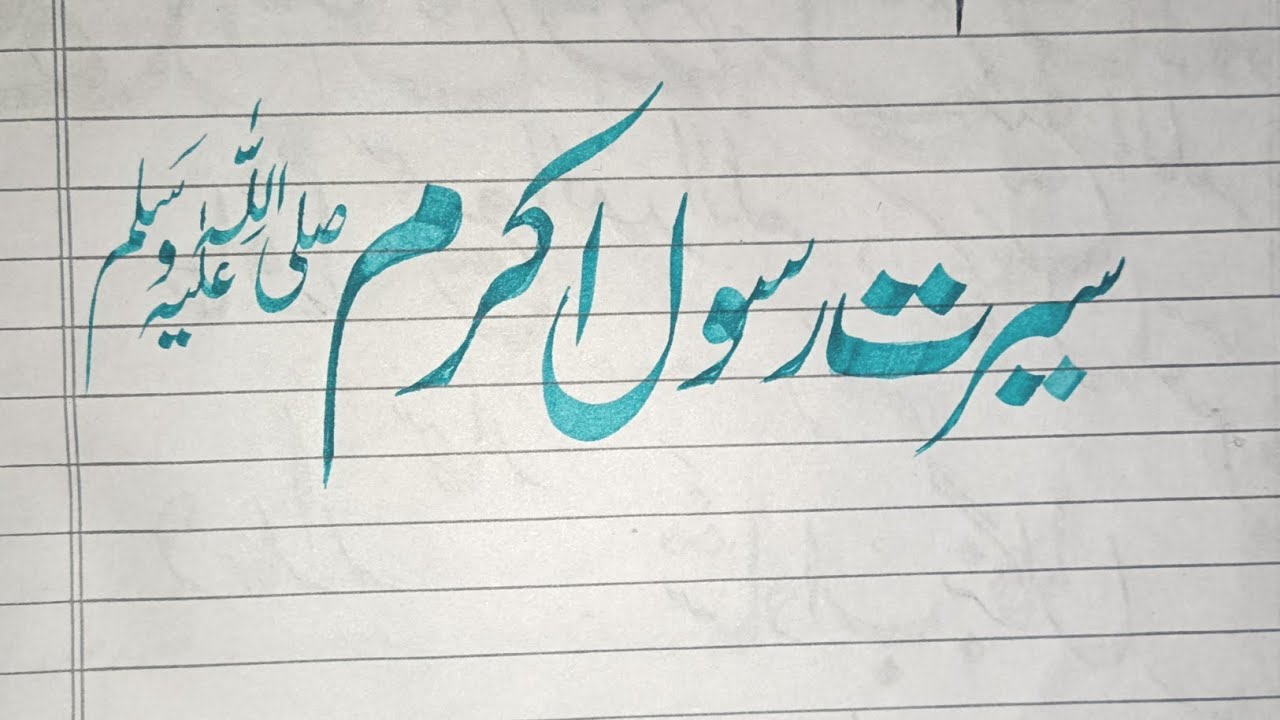 سیرت رسول اکرم صلی اللہ علیہ وسلم